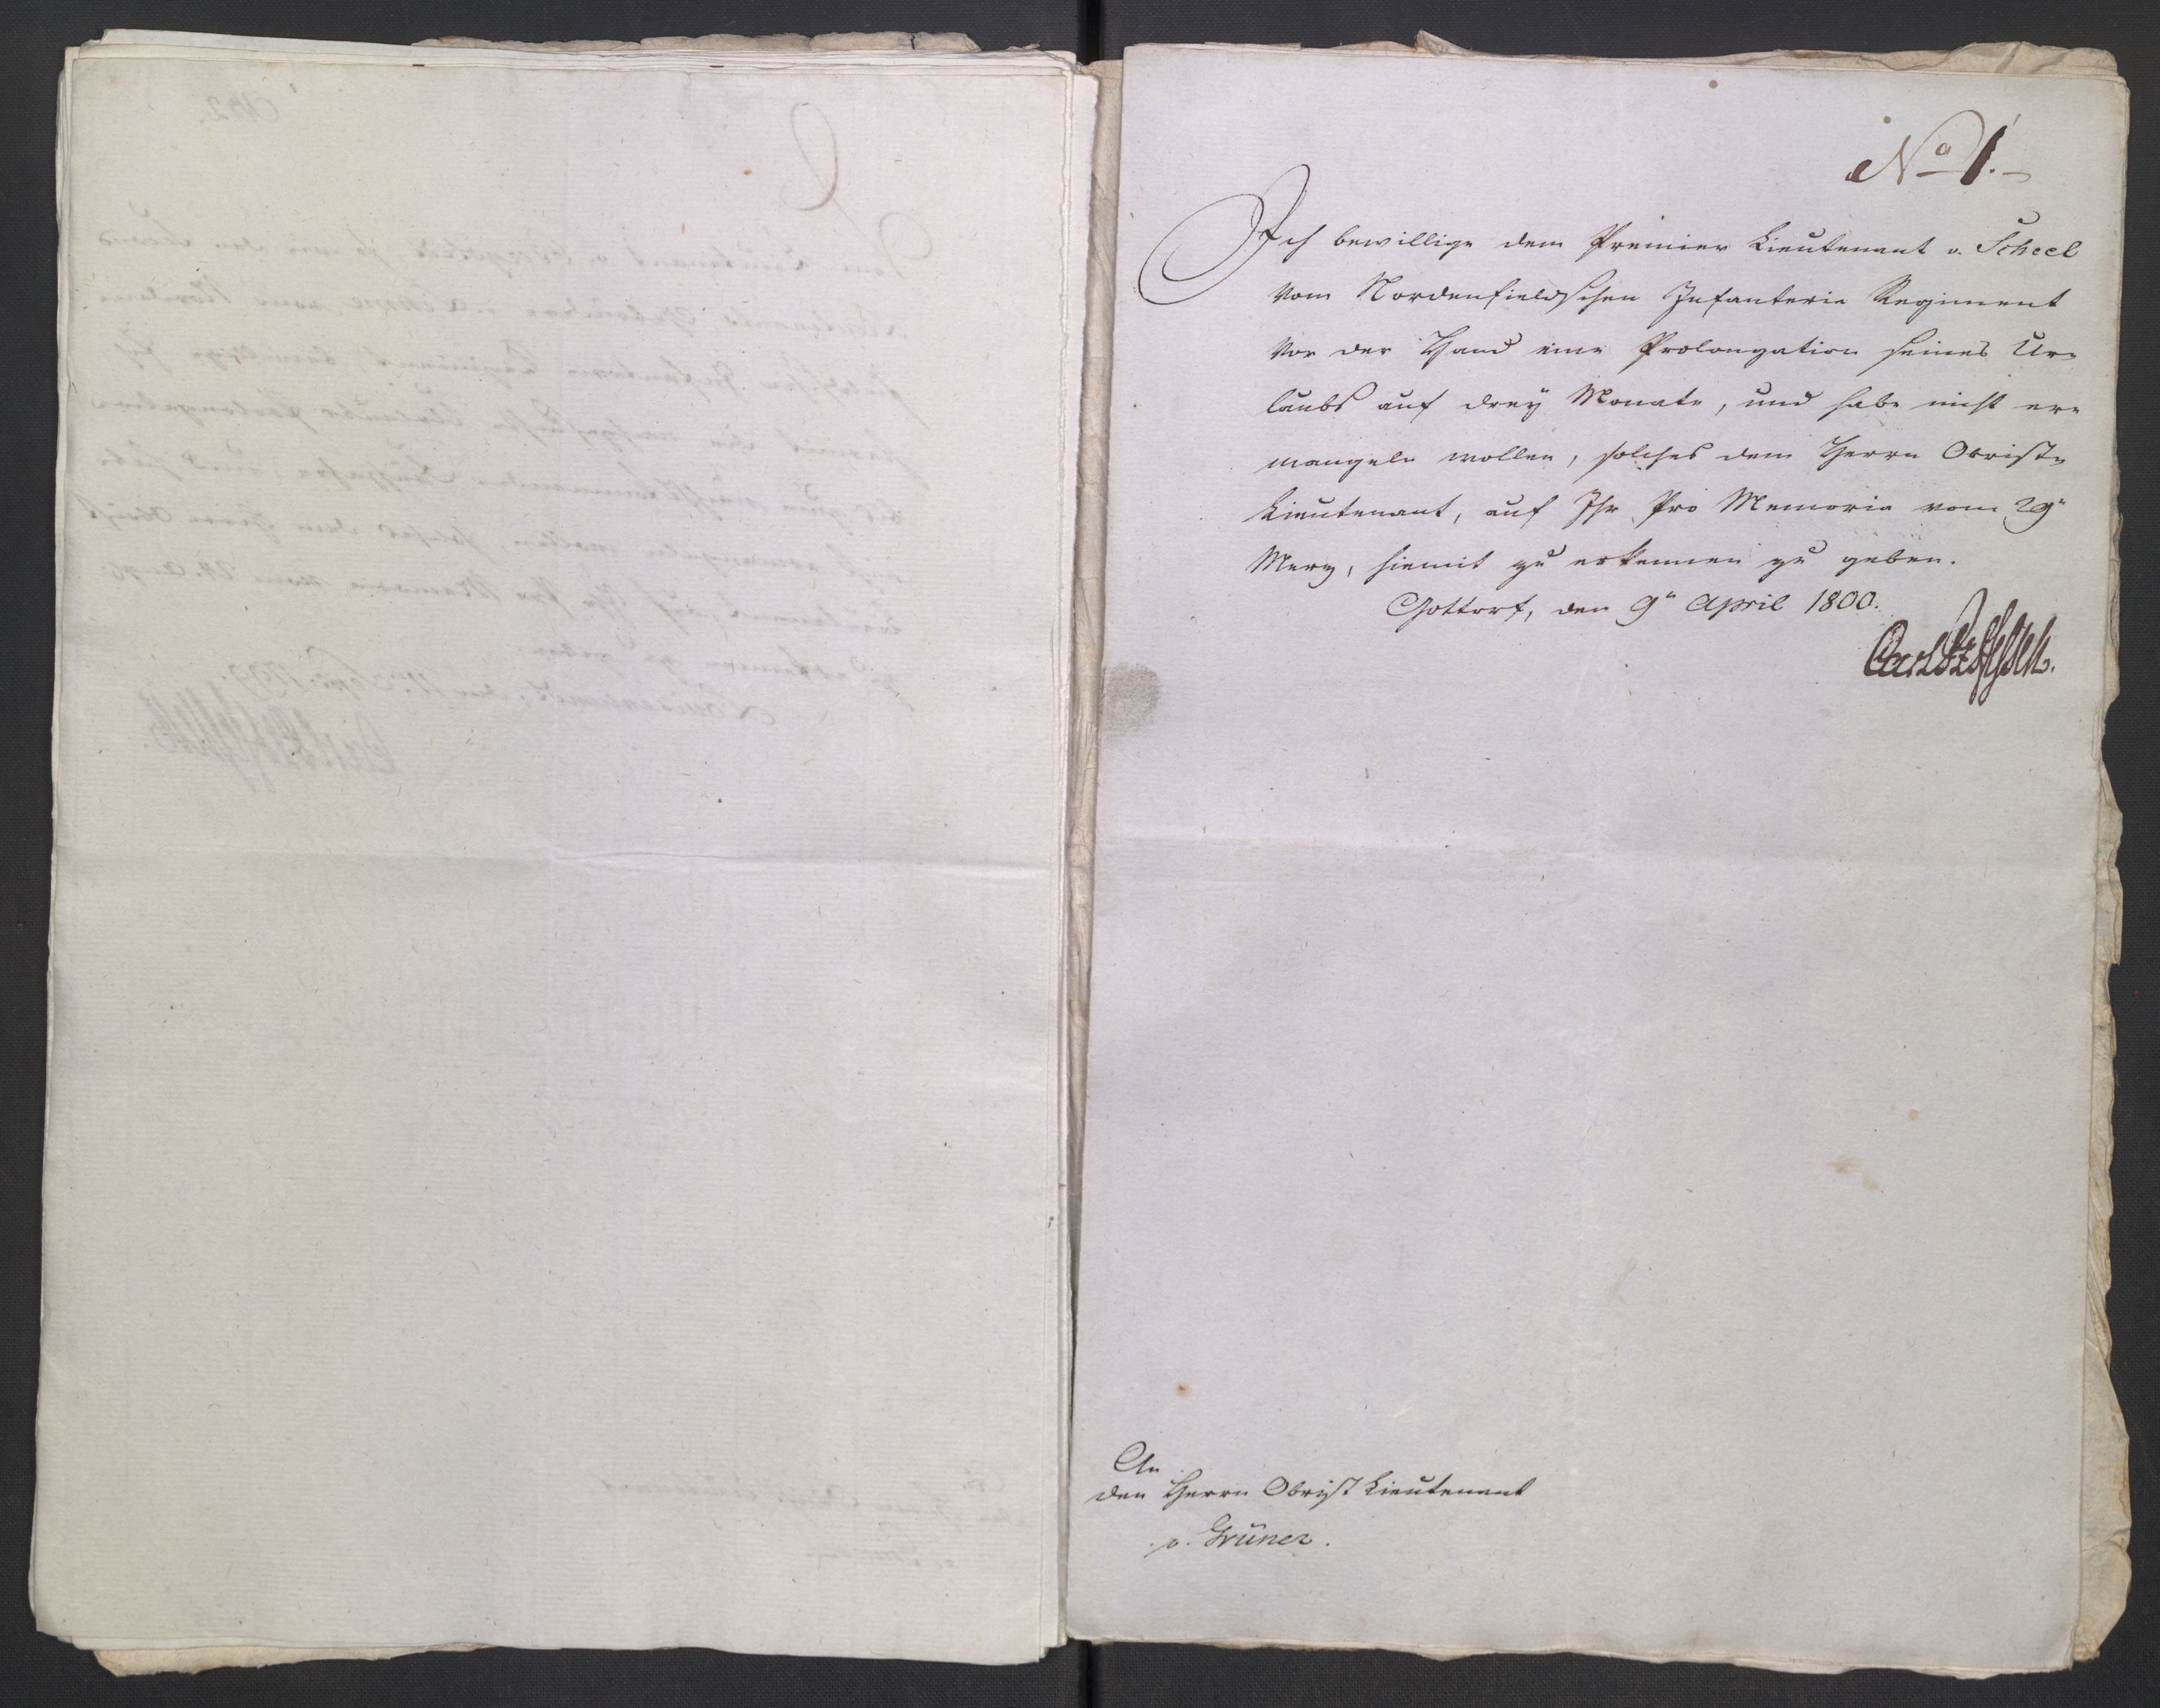 No 1.
Ich bewillige dem Premier Lieutenant v. Scheel
vom Nordenfieldschen Infanterie Regiment
vor der Hand eine Prolongation seines Ur-
laubs auf drey Monate, und habe nicht er-
mangeln wollen, solches dem Herrn Obrist-
Lieutenant, auf Ihr Pro Memoria vom 29n
Merz, hiemit zu erkennen zu geben.
Gottorf, den 9n April 1800.
Carl PzHessen.
An
den Herrn Obrist Lieutenant
v. Grüner.